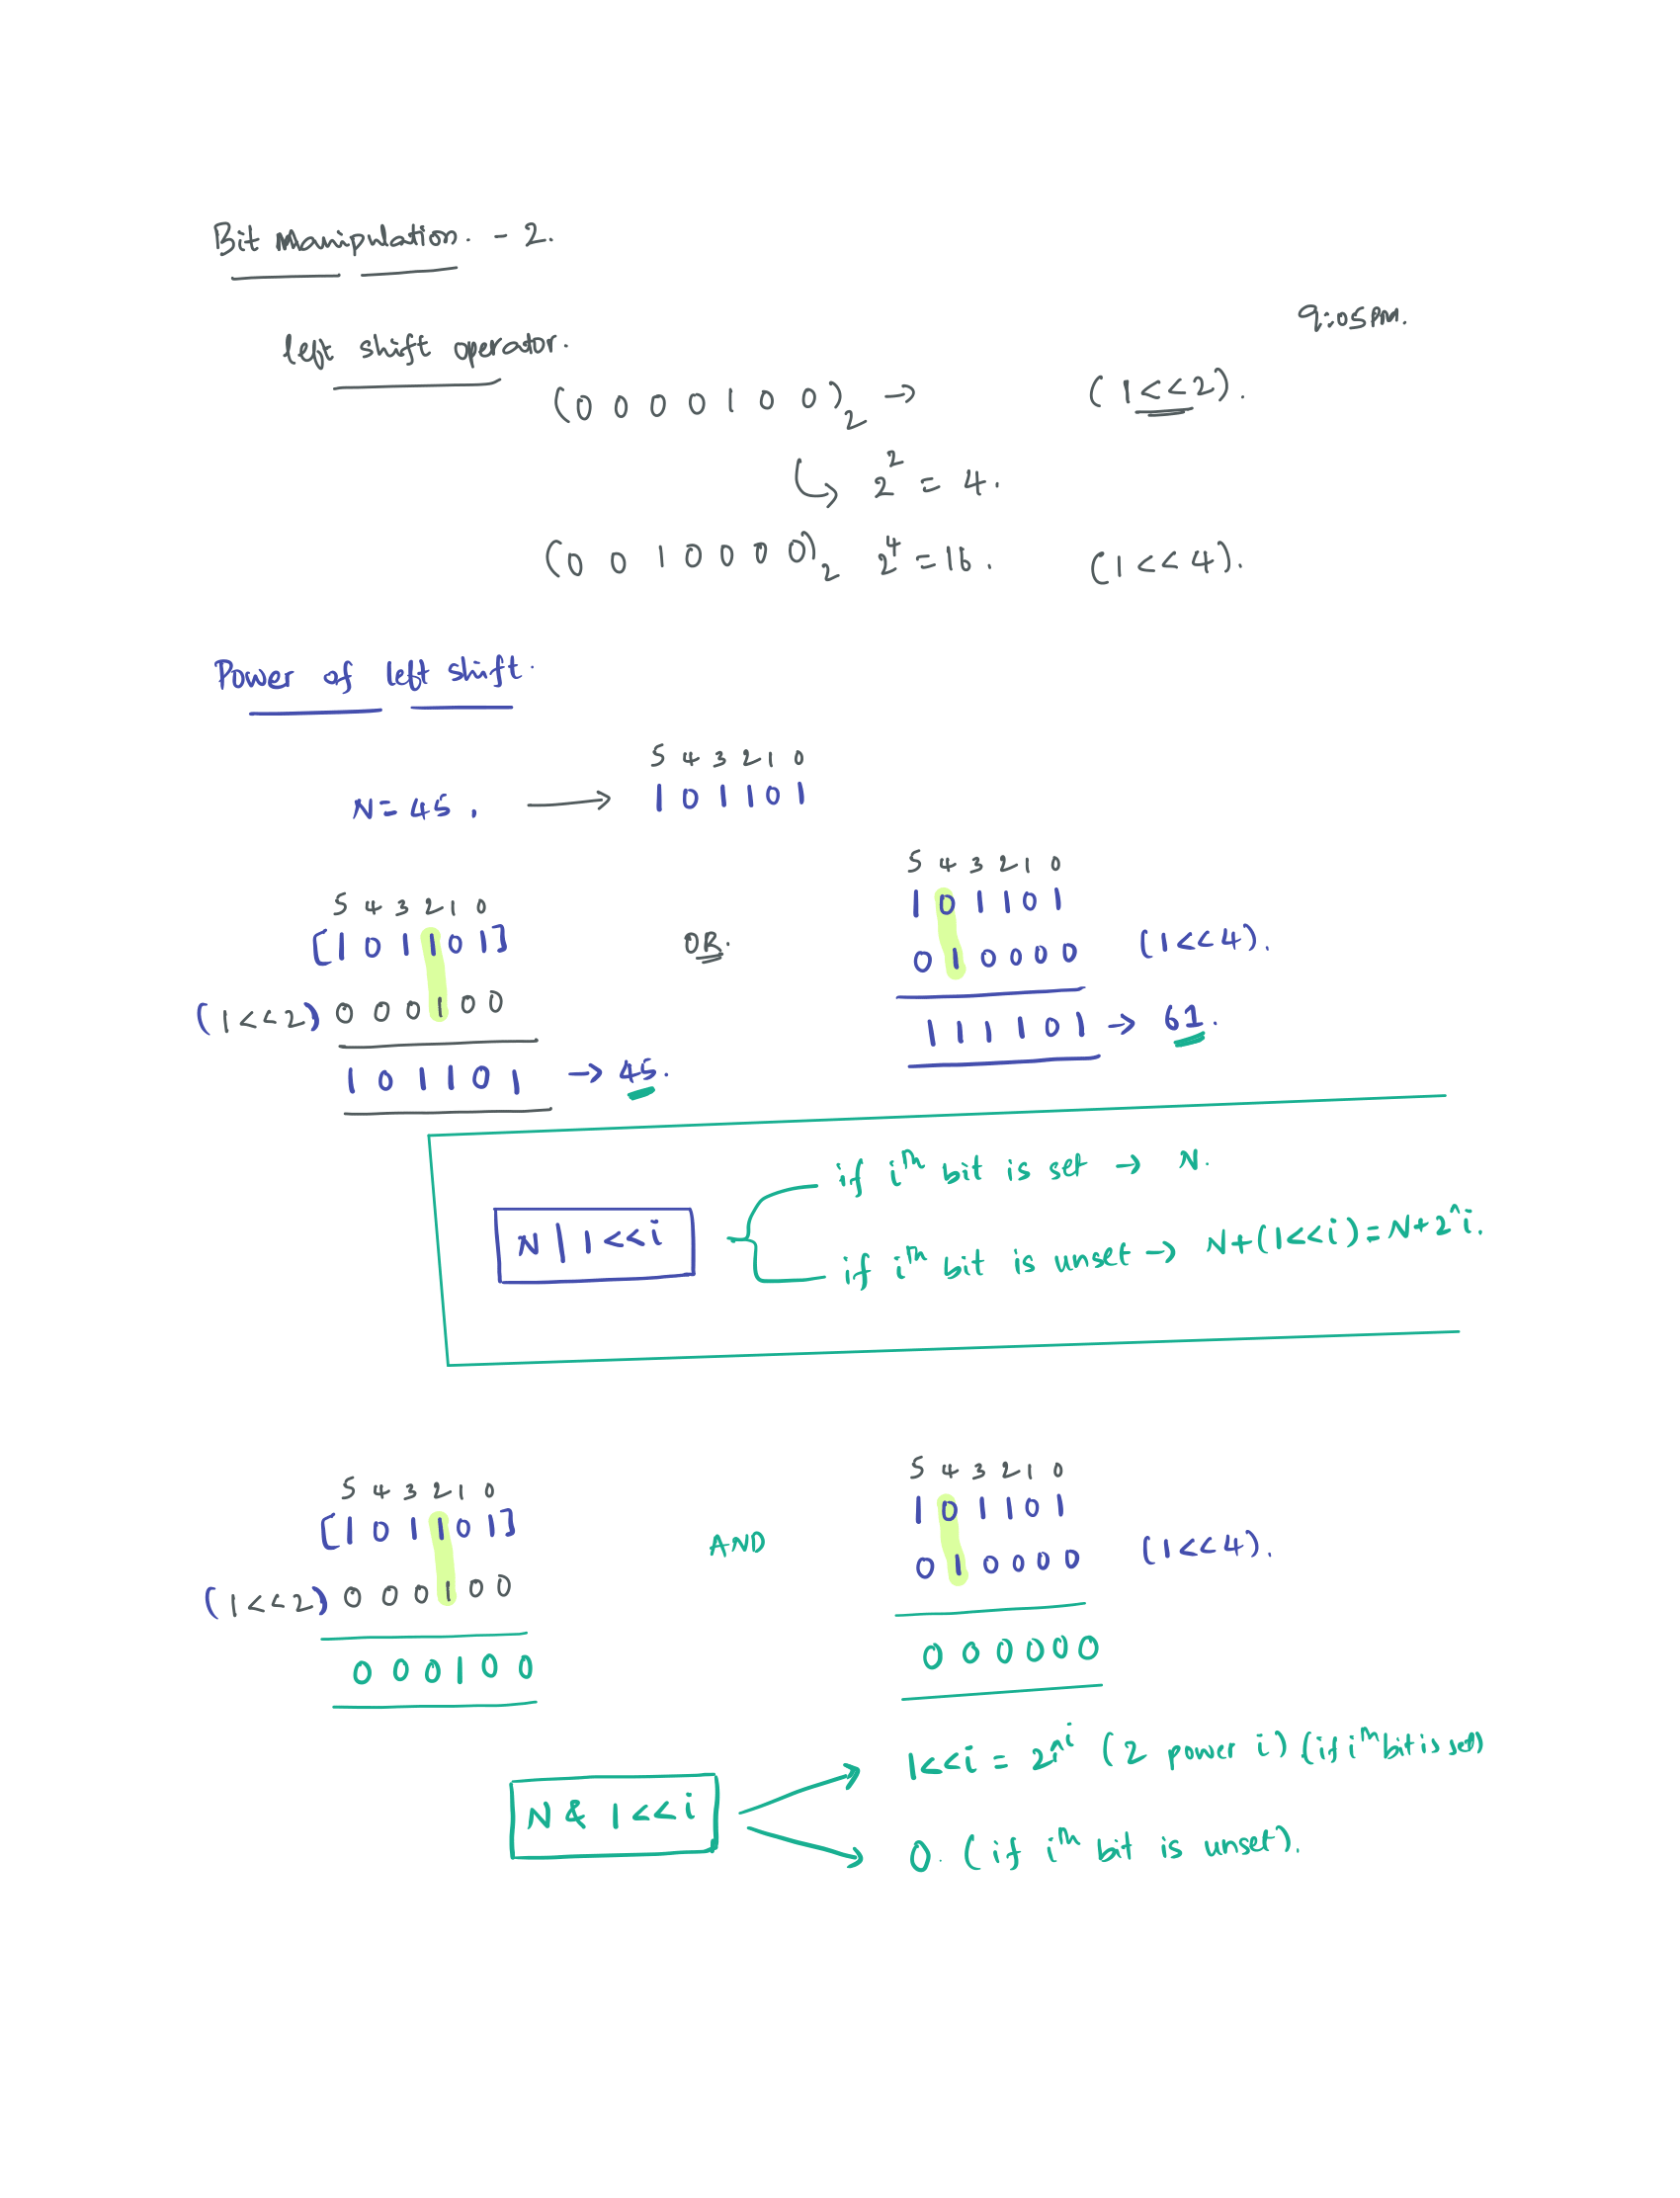 Bit Manipulation. - 2.
9:05PM.
left shift operator.
(0 0 0 0 1 0 0)₂ → (1<<2).
↳ 2² = 4.
(0 0 1 0 0 0 0)₂ 2⁴ = 16. (1<<4).
Power of left shift.
5 4 3 2 1 0
N = 45. → 1 0 1 1 0 1
5 4 3 2 1 0
[1 0 1 1 0 1]
(1<<2) 0 0 0 1 0 0
1 0 1 1 0 1 → 45.
OR.
5 4 3 2 1 0
1 0 1 1 0 1
0 1 0 0 0 0 (1<<4).
1 1 1 1 0 1 → 61.
N | 1<<i
if iᵗʰ bit is set → N.
if iᵗʰ bit is unset → N+(1<<i) = N+2^i.
5 4 3 2 1 0
[1 0 1 1 0 1]
(1<<2) 0 0 0 1 0 0
0 0 0 1 0 0
AND
5 4 3 2 1 0
1 0 1 1 0 1
0 1 0 0 0 0 (1<<4).
0 0 0 0 0 0
N & 1<<i
1<<i = 2^i (2 power i) (if iᵗʰ bit is set)
0. (if iᵗʰ bit is unset).